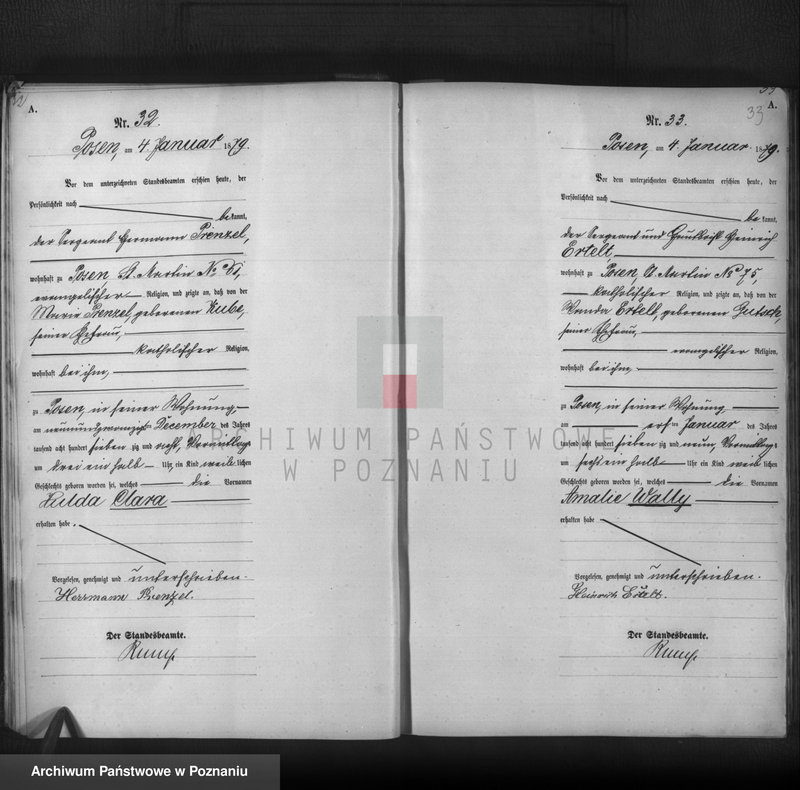 32
A.
Nr. 32.
Posen, am 4. Januar 1879.
Vor dem unterzeichneten Standesbeamten erschien heute, der
Persönlichkeit nach
bekannt,
der Sergeant Hermann Prenzel,
wohnhaft zu Posen, St. Martin No
evangelischer Religion, und zeigte an, daß von der
Marie Prenzel, geborenen Kube,
seiner Ehefrau,
katholischer Religion,
wohnhaft bei ihm,
zu Posen, in seiner Wohnung,
am neunundzwanzigsten December des Jahres
tausend acht hundert siebenzig und acht, Vormittags
um drei ein halb Uhr ein Kind weiblichen
Geschlechts geboren worden sei, welches die Vornamen
Hulda Clara
erhalten habe.
Vorgelesen, genehmigt und unterschrieben.
Herrmann Prenzel.
Der Standesbeamte.
33
A.
33
Nr. 33.
Posen, am 4. Januar 1879.
Vor dem unterzeichneten Standesbeamten erschien heute, der
Persönlichkeit nach
bekannt,
der Sergeant und Heinrich
Ertelt,
wohnhaft zu Posen, St. Martin No 75,
katholischer Religion, und zeigte an, daß von der
Wanda Ertelt, geborenen Gutsch,
seiner Ehefrau,
evangelischer Religion,
wohnhaft bei ihm,
zu Posen, in seiner Wohnung
am ersten Januar des Jahres
tausend acht hundert siebenzig und neun, Vormittags
um sechs ein halb Uhr ein Kind weiblichen
Geschlechts geboren worden sei, welches die Vornamen
Amalie Wally
erhalten habe
Vorgelesen, genehmigt und unterschrieben.
Heinrich Ertelt.
Der Standesbeamte.
ARCHIWUM PAŃSTWOWE
W POZNANIU
Archiwum Państwowe w Poznaniu